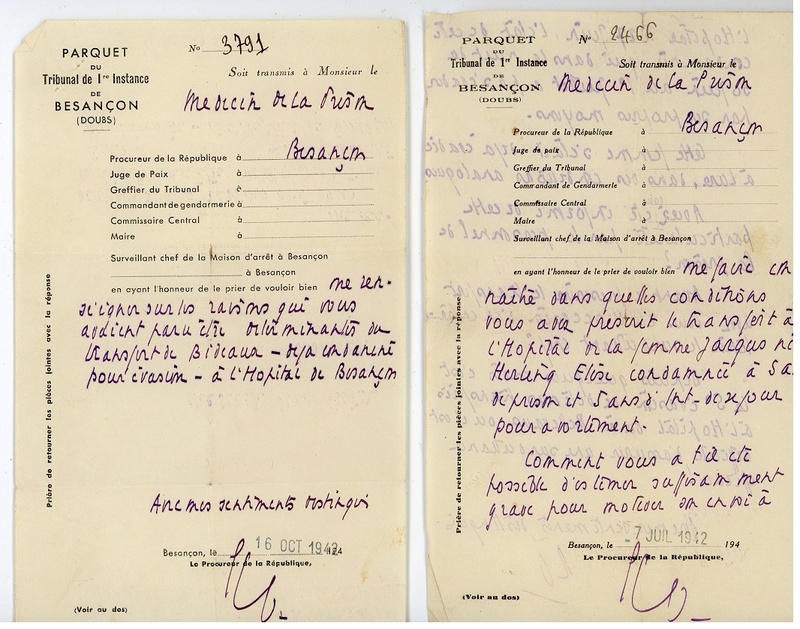 PARQUET
DU
Tribunal de 1re Instance
DE
BESANÇON
(DOUBS)
No 3791
Soit transmis à Monsieur le
Médecin de la Prison
Procureur de la République à Besançon
Juge de Paix à
Greffier du Tribunal à
Commandant de gendarmerie à
Commissaire Central à
Maire à
Surveillant chef de la Maison d'arrêt à Besançon
à Besançon
en ayant l'honneur de le prier de vouloir bien me ren-
seigner sur les raisons qui vous
avaient paru être déterminantes du
transfert de Bideaux - déjà condamné
pour évasion - à l'Hopital de Besançon
Avec mes sentiments distingués
Besançon, le 16 OCT 1942
Le Procureur de la République,
(Voir au dos)
Prière de retourner les pièces jointes avec la réponse
PARQUET
DU
Tribunal de 1re Instance
DE
BESANÇON
(DOUBS)
No 2466
Soit transmis à Monsieur le
Médecin de la Prison
Procureur de la République à Besançon
Juge de paix à
Greffier du Tribunal à
Commandant de Gendarmerie à
Commissaire Central à
Maire à
Surveillant chef de la Maison d'arrêt à Besançon
en ayant l'honneur de le prier de vouloir bien me faire con
naître dans quelles conditions
vous avez prescrit le transfert à
l'Hopital de la femme Jarqus née
Herling Elise condamnée à 5 a
de prison et 5 ans d'Int- de sejour
pour avortement.
Comment vous a t'il été
possible d'estimer suffisamment
grave pour motiver son envoi à
Besançon, le -7 JUIL 1942 194
Le Procureur de la République,
(Voir au dos)
Prière de retourner les pièces jointes avec la réponse